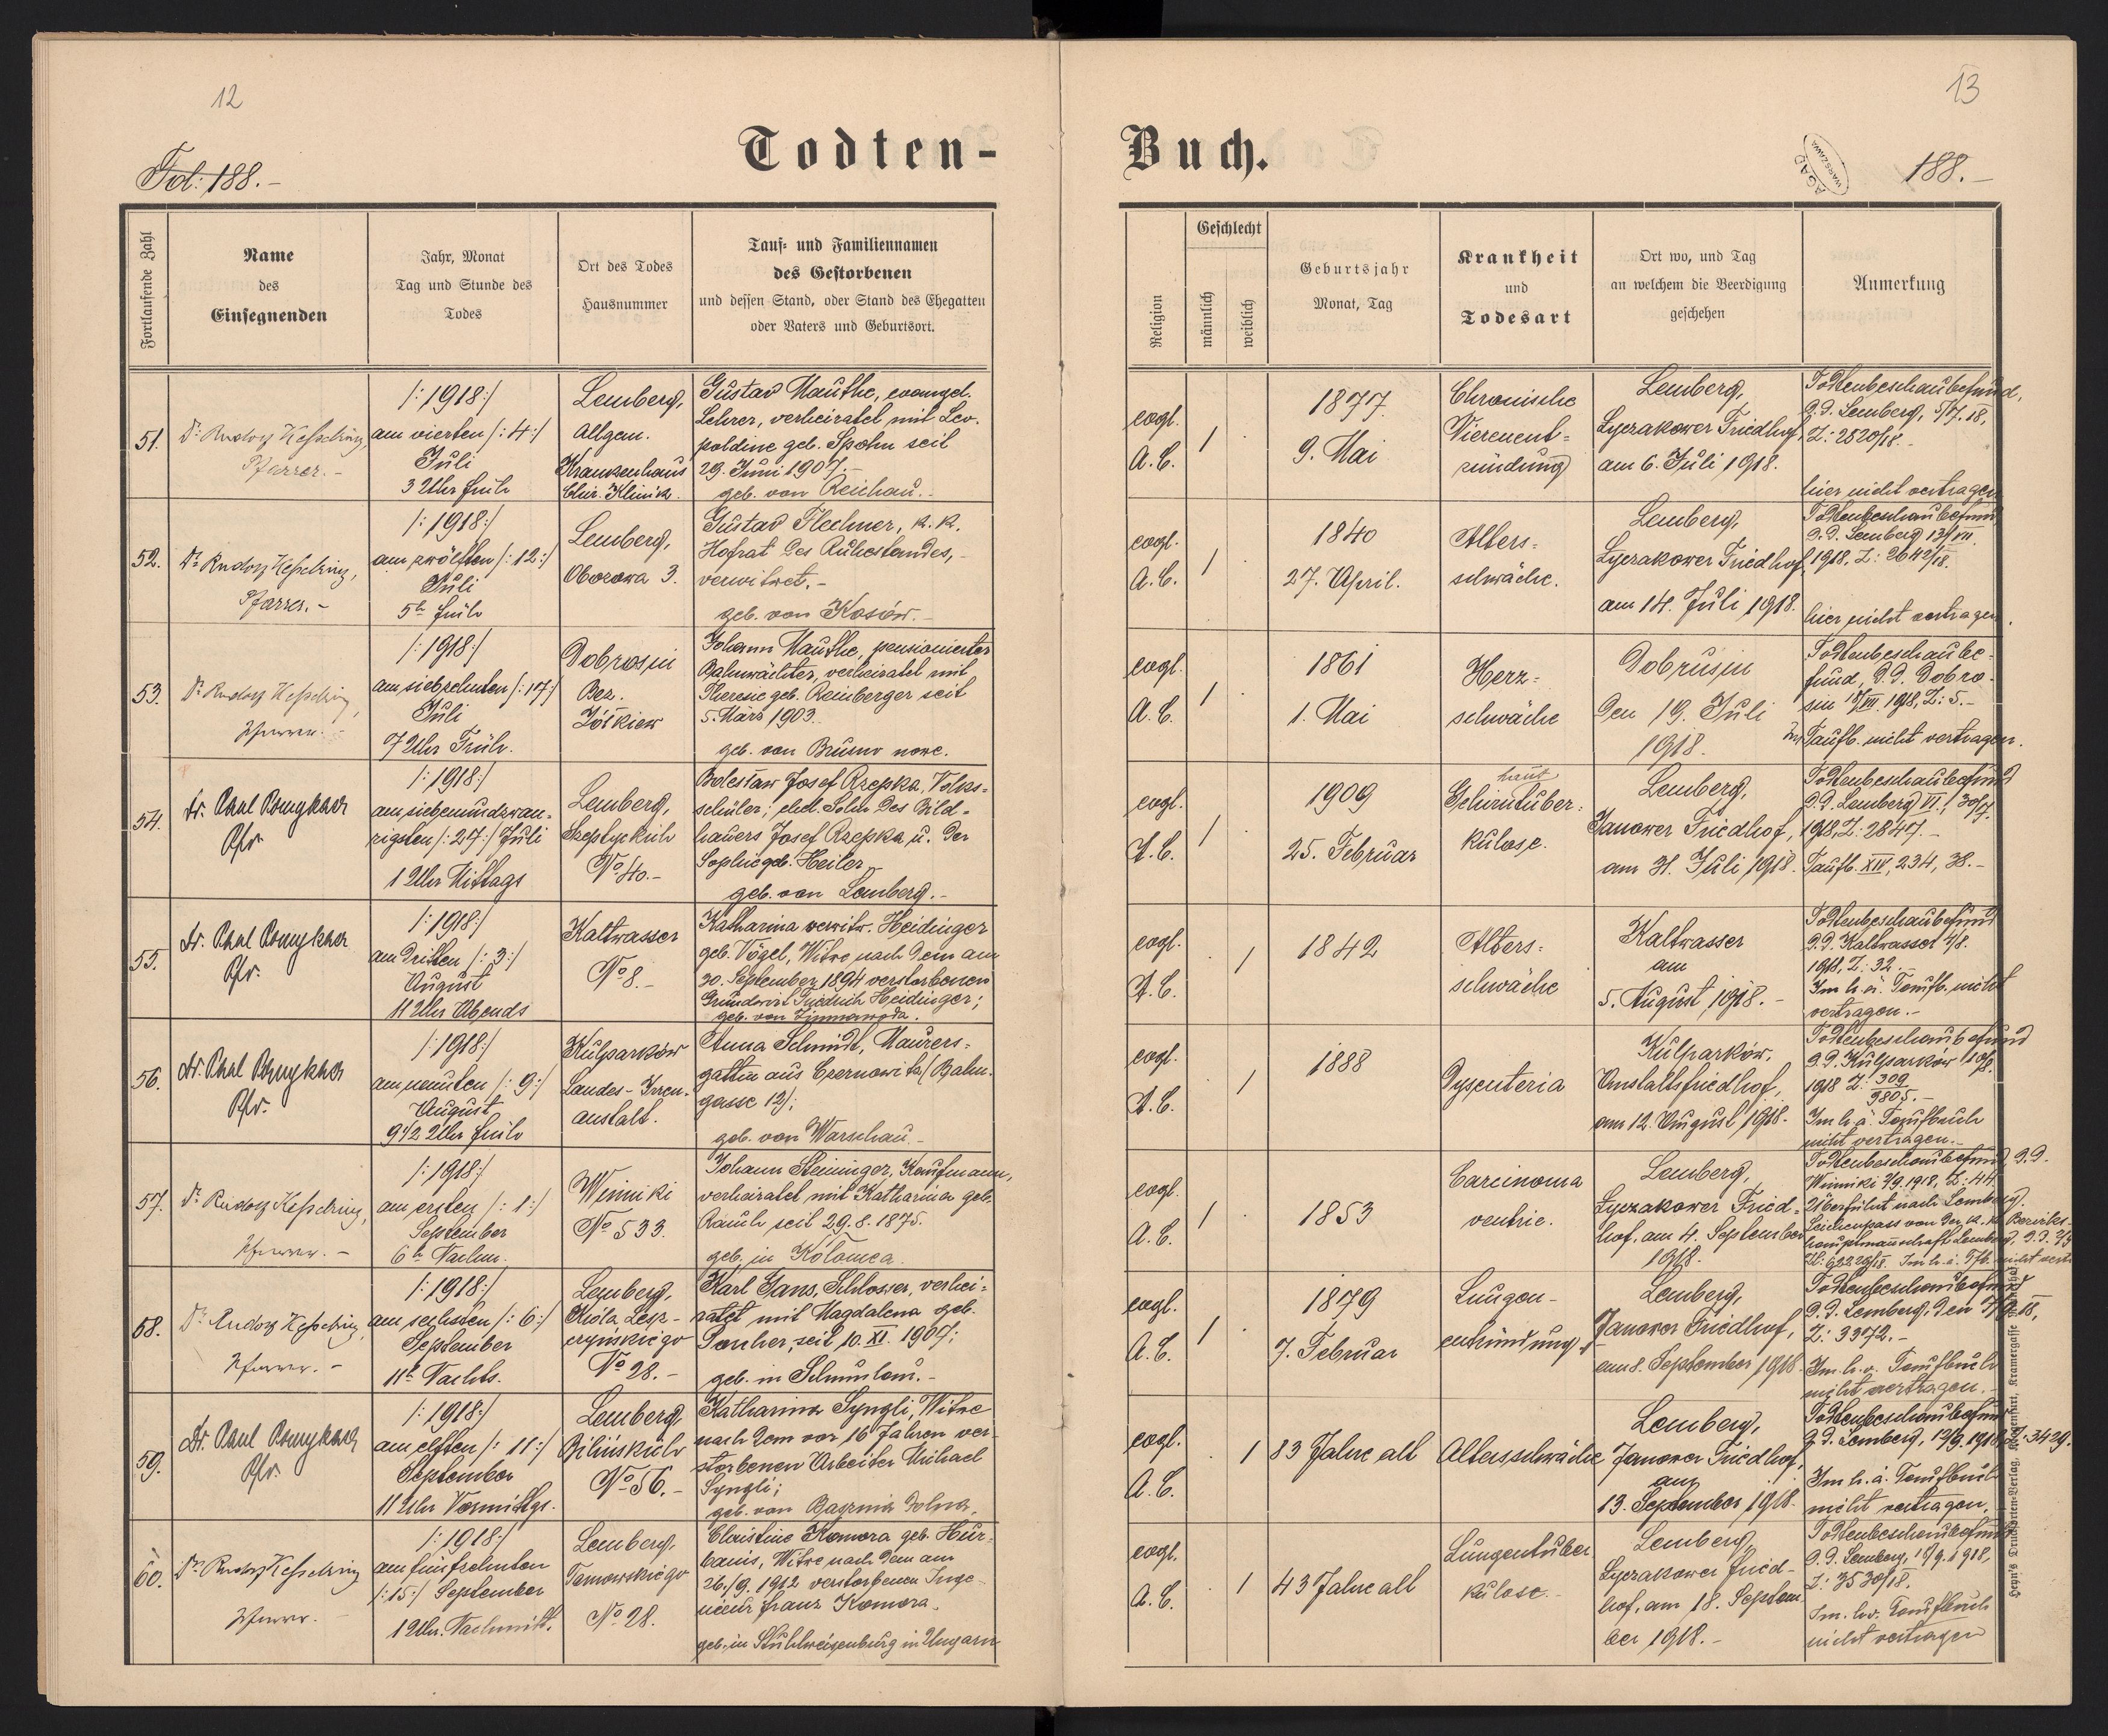 12
13
Todten-
Buch.
Fol: 188.-
AGAD
WARSZAWA
188.-
Fortlaufende Zahl
Name
des
Einsegnenden
Jahr, Monat
Tag und Stunde des
Todes
Ort des Todes
Hausnummer
Tauf- und Familiennamen
des Gestorbenen
und dessen Stand, oder Stand des Ehegatten
oder Vaters und Geburtsort.
Religion
Geschlecht
männlich
weiblich
Geburtsjahr
Monat, Tag
Krankheit
und
Todesart
Ort wo, und Tag
an welchem die Beerdigung
geschehen
Anmerkung
51.
Dr. Rudolf Kesselring,
Pfarrer.-
/:1918:/
am vierten /:4:/
Juli
3 Uhr früh
Lemberg,
Allgem.
Krankenhaus
Chir. Klinik.
Gustav Mauthe, evangel.
Lehrer, verheiratet mit Leo-
poldine geb. Spohn seit
29. Juni 1907.-
geb. von Reichau.-
evgl.
A.C.
1
1877.
9. Mai
Chronische
Nierenent-
zündung
Lemberg,
Lyczakower Friedhof,
am 6. Juli 1918.
Todtenbeschaubefund,
d.d. Lemberg, 5/7.18,
Z: 2520/18.-
hier nicht vertragen
52.
Dr. Rudolf Kesselring,
Pfarrer.-
/:1918:/
am zwölften /:12:/
Juli
5h früh
Lemberg,
Oborowa 3.
Gustav Flechner, k. k.
Hofrat des Ruhestandes,-
verwitwet.-
geb. von Kosów.-
evgl.
A.C.
1
1840
27. April.
Alters-
schwäche.
Lemberg,
Lyczakower Friedhof,
am 14. Juli 1918.
Todtenbeschaubefund
d.d. Lemberg 13/VII.
1918, Z: 2642/18.
hier nicht vertragen.
53.
Dr. Rudolf Kesselring,
Pfarrer.-
/:1918:/
am siebzehnten /:17:/
Juli
7 Uhr Früh.
Dobrosin
Bez.
Żółkiew
Johann Mauthe, pensionierter
Bahnwächter, verheiratet mit
Theresie geb. Reinberger seit
5. März 1903.
geb. von Brusno nowe.
evgl.
A.C.
1
1861
1. Mai
Herz-
schwäche
Dobrusin
den 19. Juli
1918.
Todtenbeschaube-
fund, d.d. Dobro-
sin 18/VII. 1918, Z: 5.-
Im Taufb. nicht vertragen.
54.
Dr. Paul Romykaer
Pfr.
/:1918:/
am siebenundzwan-
zigsten /:27:/ Juli
1 Uhr Mittags
Lemberg,
Szeptyckich
No 40.-
Bolesław Josef Rzepka, Volks-
schüler; ehel. Sohn des Bild-
hauers Josef Rzepka u. der
Sophie geb. Heiler
geb. von Lemberg.-
evgl.
A.C.
1
1909
25. Februar
Gehirnhauttuber-
kulose.
Lemberg,
Janower Friedhof,
am 31. Juli 1918.
Todtenbeschaubefund
d.d. Lemberg VI., 30/7.
1918, Z: 2847.-
Taufb. XIV, 234, 38.-
55.
Dr. Paul Romykaer
Pfr.
/:1918:/
am dritten /:3:/
August
11 Uhr Abends
Kaltwasser
No 8.-
Katharina verwitw. Heidinger
geb. Vögel, Witwe nach dem am
30. September 1894 verstorbenen
Grundwirt Friedrich Heidinger;
geb. von Zimnawoda.
evgl.
A.C.
1
1842
Alters-
schwäche
Kaltwasser
am
5. August 1918.-
Todtenbeschaubefund
d.d. Kaltwasser 4/8.
1918, Z: 32.-
Im h. ä. Taufb. nicht
vertragen.-
56.
Dr. Paul Romykaer
Pfr.
/:1918:/
am neunten /:9:/
August
9 1/2 Uhr früh
Kulparków
Landes-Irren-
anstalt.
Anna Schmidt, Maurers-
gattin aus Czernowitz /Bahn-
gasse 12/;
geb. von Warschau.-
evgl.
A.C.
1
1888
Dysenteria
Kulparków,
Anstaltsfriedhof,
am 12. August 1918.
Todtenbeschaubefund
d.d. Kulparków 10/8.
1918 Z: 309/9805.-
Im h. ä. Taufbuch
nicht vertragen.-
57.
Dr. Rudolf Kesselring,
Pfarrer.-
/:1918:/
am ersten /:1:/
September
6h Nachm.
Winniki
No 533.
Johann Steininger, Kaufmann,
verheiratet mit Katharina geb.
Rauch seit 29.8.1875.
geb. in Kołomea.
evgl.
A.C.
1
1853
Carcinoma
ventric.
Lemberg,
Lyczakower Fried-
hof, am 4. September
1918.
Todtenbeschaubefund, d.d.
Winniki 2/9.1918, Z: 44.
Überführt nach Lemberg.
Leichenpass von der k. k. Bezirks-
hauptmannschaft Lemberg, d.d. 3/9
Im h. ä. Tfb. nicht vertr.
58.
Dr. Rudolf Kesselring,
Pfarrer.-
/:1918:/
am sechsten /:6:/
September
11h Nachts.
Lemberg,
Króla Lesz-
czyńskiego
No 28.-
Karl Jans, Schlosser, verhei-
ratet mit Magdalena geb.
seit 10. XI. 1907;
geb. in
evgl.
A.C.
1
1879
7. Februar
Lungen-
entzündung
Lemberg,
Janower Friedhof,
am 8. September 1918.
Todtenbeschaubefund
d.d. Lemberg, den 7/9.18,
Z: 3372.-
Im h. ä. Taufbuch
nicht vertragen.-
59.
Dr. Paul Romykaer
Pfr.
/:1918:/
am elften /:11:/
September
11 Uhr Vormittgs.
Lemberg,
Bilińskich
No 56.-
Katharina Syngli, Witwe
nach dem vor 16 Jahren ver-
storbenen Arbeiter Michael
Syngli;
geb. von Bagrnia dolna.
evgl.
A.C.
1
83 Jahre alt
Altersschwäche
Lemberg,
Janower Friedhof,
am
13. September 1918.
Todtenbeschaubefund
d.d. Lemberg, 12/9.1918, Z: 3429.
Im h. ä. Taufbuch
nicht vertragen.
60.
Dr. Rudolf Kesselring
Pfarrer.
/:1918:/
am fünfzehnten
/:15:/ September
1 Uhr. Nachmitt.
Lemberg,
Tarnowskiego
No 28.
Christine Komora geb. Hur-
banis, Witwe nach dem am
26./9. 1912 verstorbenen Inge-
nieur Franz Komora.
geb. in Stuhlweißenburg in Ungarn
evgl.
A.C.
1
43 Jahre alt
Lungentuber
kulose.-
Lemberg,
Lyczakower Fried-
hof, am 18. Septem
ber 1918.-
Todtenbeschaubefund
d.d. Lemberg, 17/9.1918,
Z: 3530/18.
Im. hs. Taufbuch
nicht vertragen